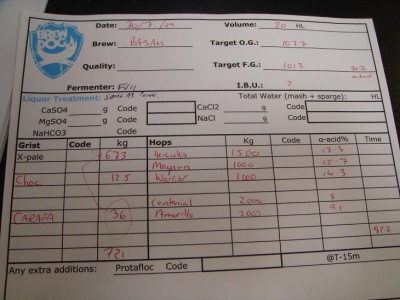 BREW DOG
Date: 30/7/09 Volume: 20 HL
Brew: BASHAH Target O.G.: 1077
Quality: Target F.G.: 1013
Fermenter: FV11 I.B.U.: ?
Liquor Treatment: Same As Total Water (mash + sparge): HL
CaSO4 g Code CaCl2 g Code
MgSO4 g Code NaCl g Code
NaHCO3 Code
Grist Code kg Hops Kg Code α-acid% Time
X-pale 673 Hercules 1500 17.3
Magnum 1000 15.7
Choc 12.5 Warrior 1000 14.3
Centenial 2000 8
CARAFA 36 Amarillo 2000 9.1
721
Any extra additions: Protafloc Code @T-15m